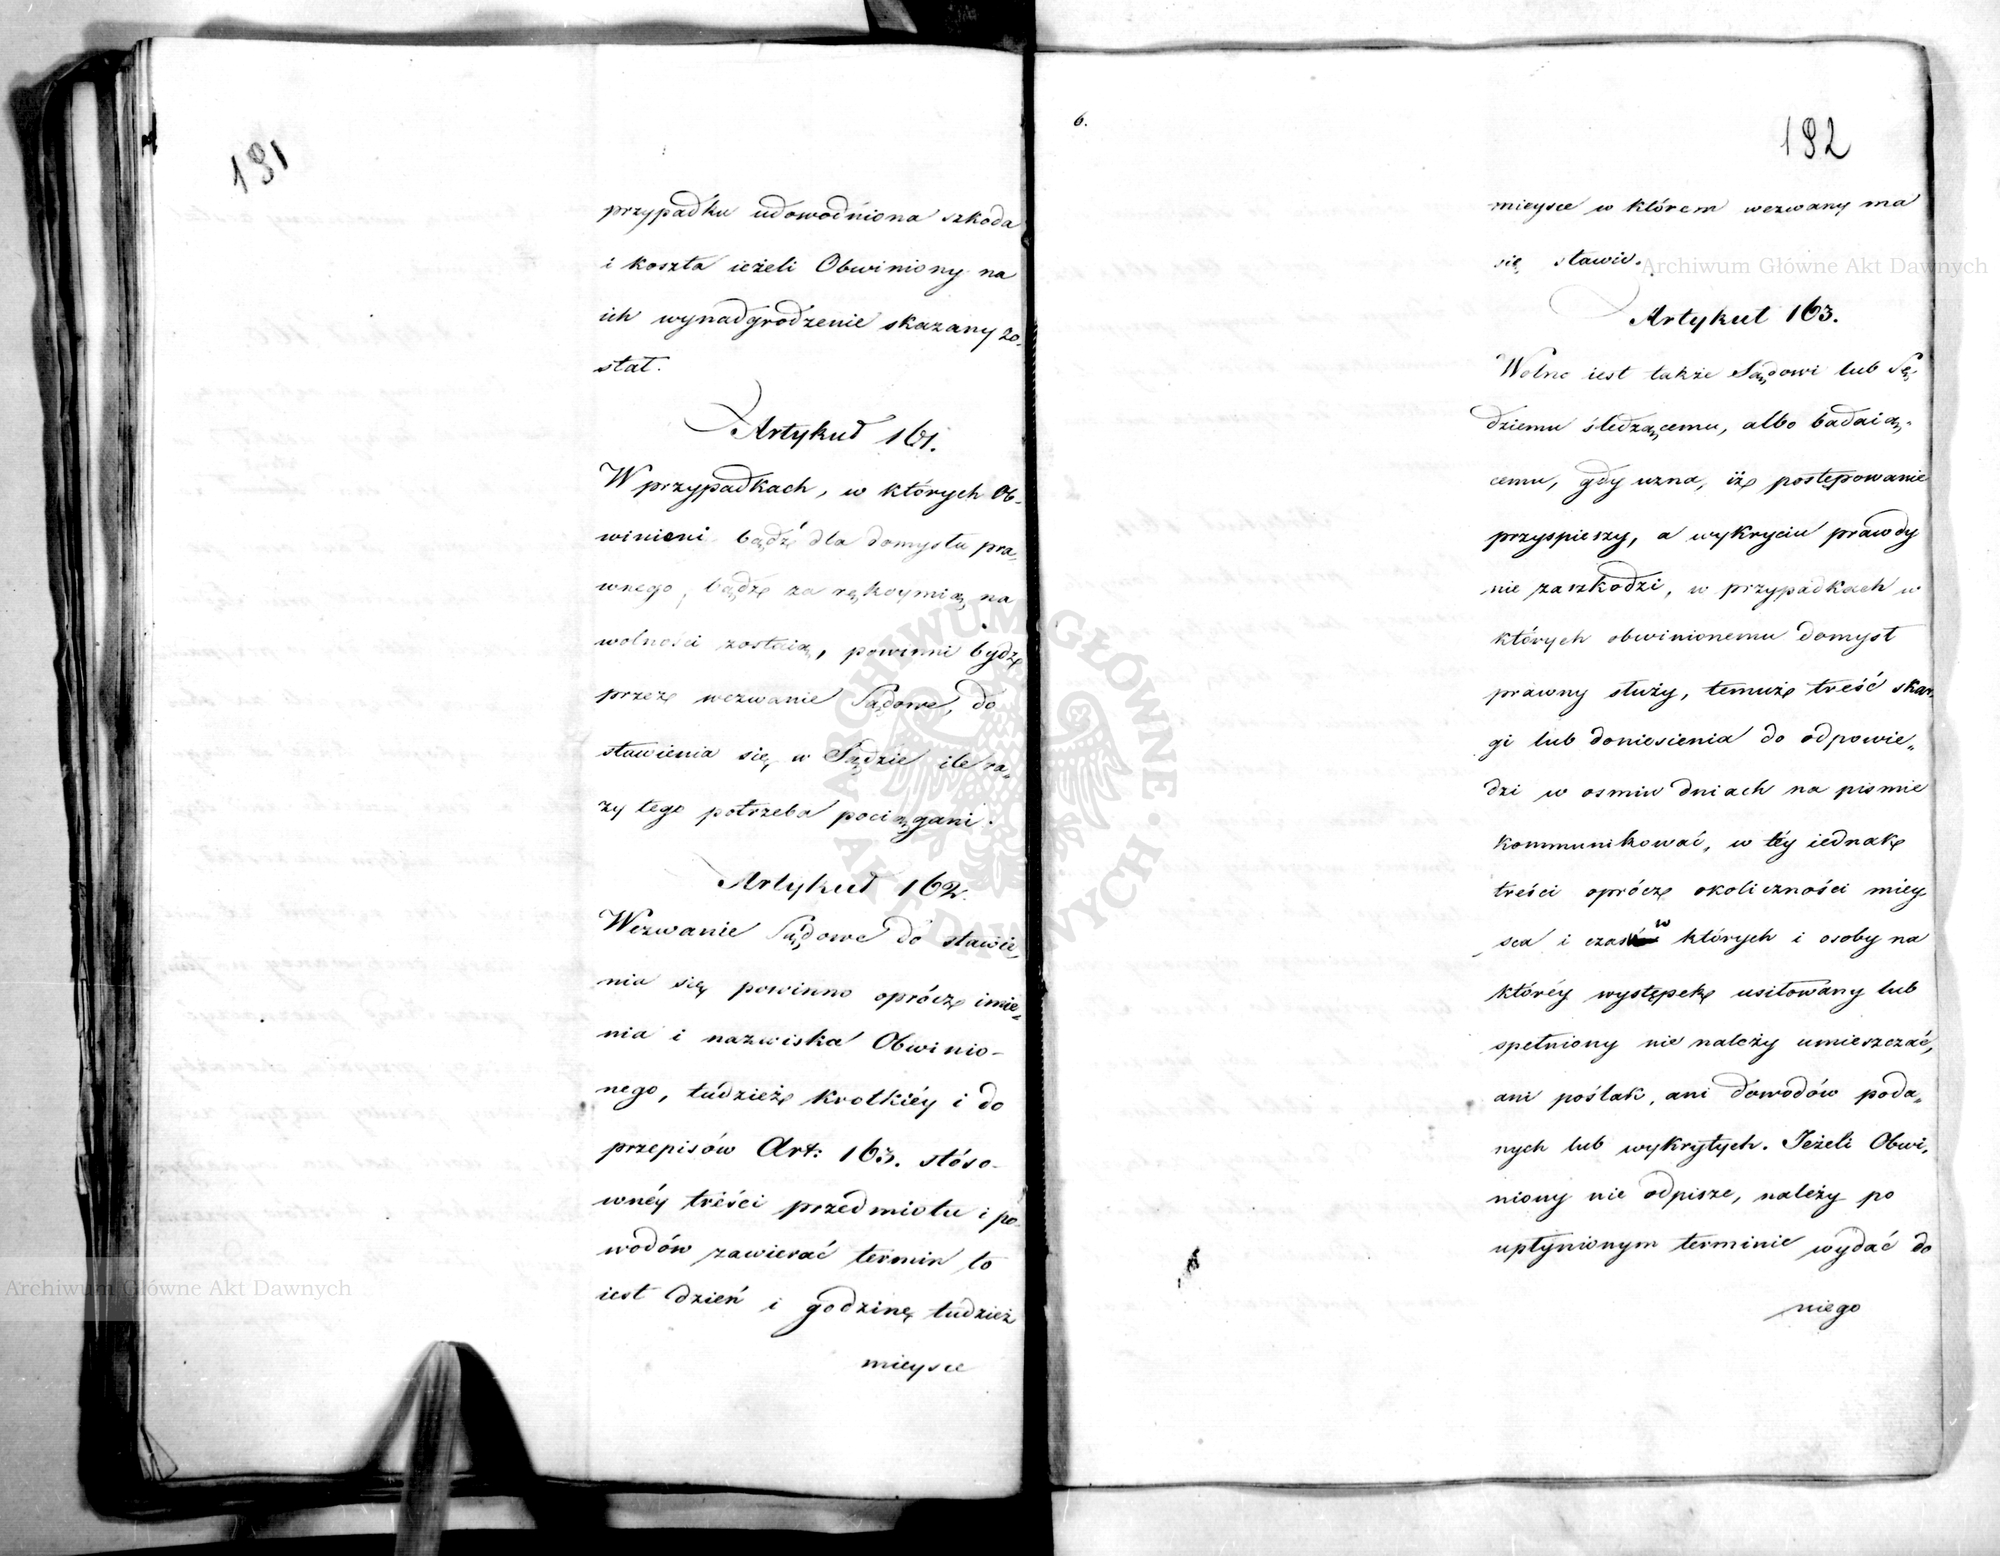 191
przypadku udowodniona szkoda
i koszta ieżeli Obwiniony na
ich wynadgrodzenie skazany zo-
stał.
Artykuł 161.
W przypadkach, w których Ob-
winieni bądź dla domysłu pra-
wnego, bądź za rękoymią na
wolności zostaią, powinni bydź
przez wezwanie Sądowe, do
stawienia się w Sądzie ile ra-
zy tego potrzeba pociągani.
Artykuł 162.
Wezwanie Sądowe do stawie-
nia się powinno oprócz imie-
nia i nazwiska Obwinio-
nego, tudzież krotkiéy i do
przepisów Art: 163. stóso-
wnéy tréści przedmiotu i po-
wodów zawierać termin to
iest dzień i godzinę tudzież
mieysce
6.
192
mieysce w którem wezwany ma
się stawić.
Artykuł 163.
Wolno iest także Sądowi lub Sę-
dziemu śledzącemu, albo badaią-
cemu, gdy uzna, iż postępowanie
przyspieszy, a wykryciu prawdy
nie zaszkodzi, w przypadkach w
których obwinionemu domysł
prawny służy, temuż treść skar-
gi lub doniesienia do odpowie-
dzi w osmiu dniach na pismie
kommunikować, w téy iednak
treści oprócz okoliczności miey-
sca i czasu w których i osoby na
któréy występek usiłowany lub
spełniony nie należy umieszczać,
ani poślak, ani dowodów poda-
nych lub wykrytych. Jeżeli Obwi-
niony nie odpisze, należy po
upłynionym terminie wydać do
niego
Archiwum Główne Akt Dawnych
Archiwum Główne Akt Dawnych
ARCHIWUM GŁÓWNE AKT DAWNYCH